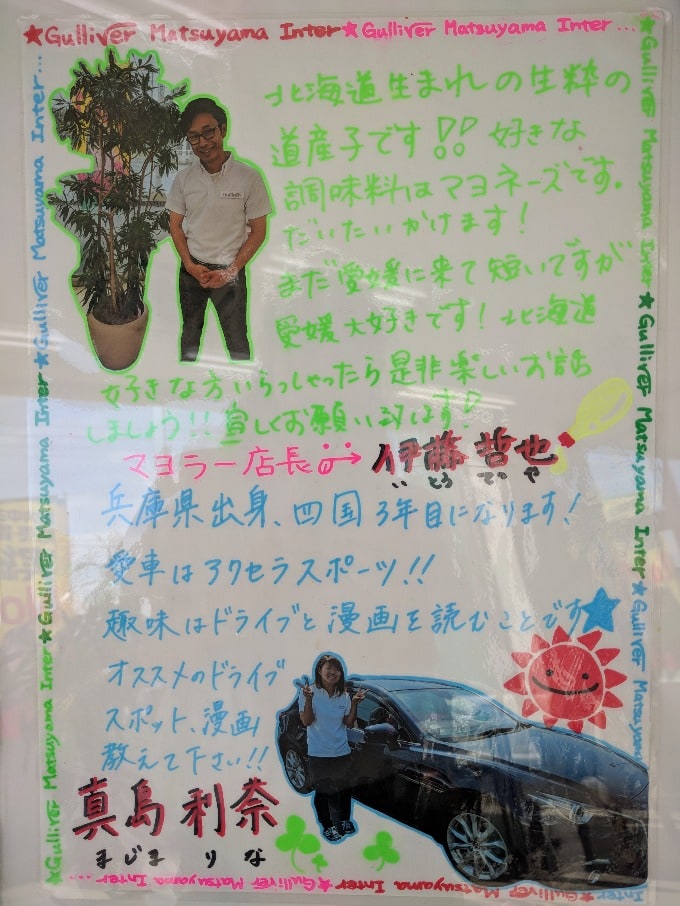 ★Gulliver Matsuyama Inter★Gulliver Matsuyama Inter...
Gulliver Matsuyama Inter...
★Gulliver Matsuyama Inter
★Gulliver Matsuyama Inter
★Gulliver Matsuyama Inter
★Gulliver Matsuyama Inter
★Gulliver Matsuyama Inter
★Gulliver Matsuyama
北海道生まれの生粋の
道産子です!! 好きな
調味料はマヨネーズです。
だいたいかけます!
まだ愛媛に来て短いですが
愛媛大好きです! 北海道
好きな方いらっしゃったら是非楽しいお話
しましょう!! 宜しくお願い致します!
マヨラー店長→伊藤哲也
いとう てつや
兵庫県出身、四国3年目になります!
愛車はアクセラスポーツ!!
趣味はドライブと漫画を読むことです★
オススメのドライブ
スポット、漫画
教えて下さい!!
真島利奈
まじま りな
★Gulliver Matsuyama Inter★Gulliver Matsuyama Inter...